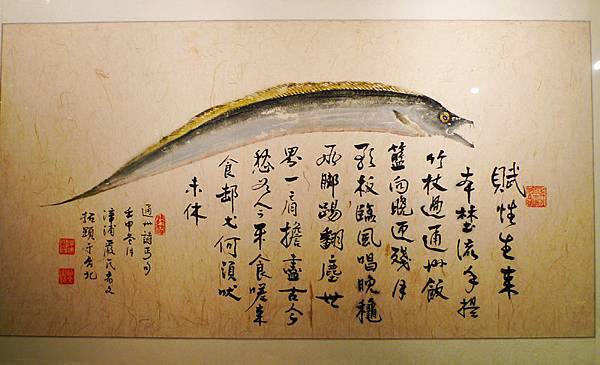 賦性生來
本埜流手提
竹杖過通州飯
籃向曉迎殘月
歌板臨風唱晚穐
兩腳踢翻塵世
界一肩擔盡古今
愁今不食嗟來
食邨犬何須吠
未休
通州詩丐句
壬申冬月
漳浦嚴氏文
拓題于台北